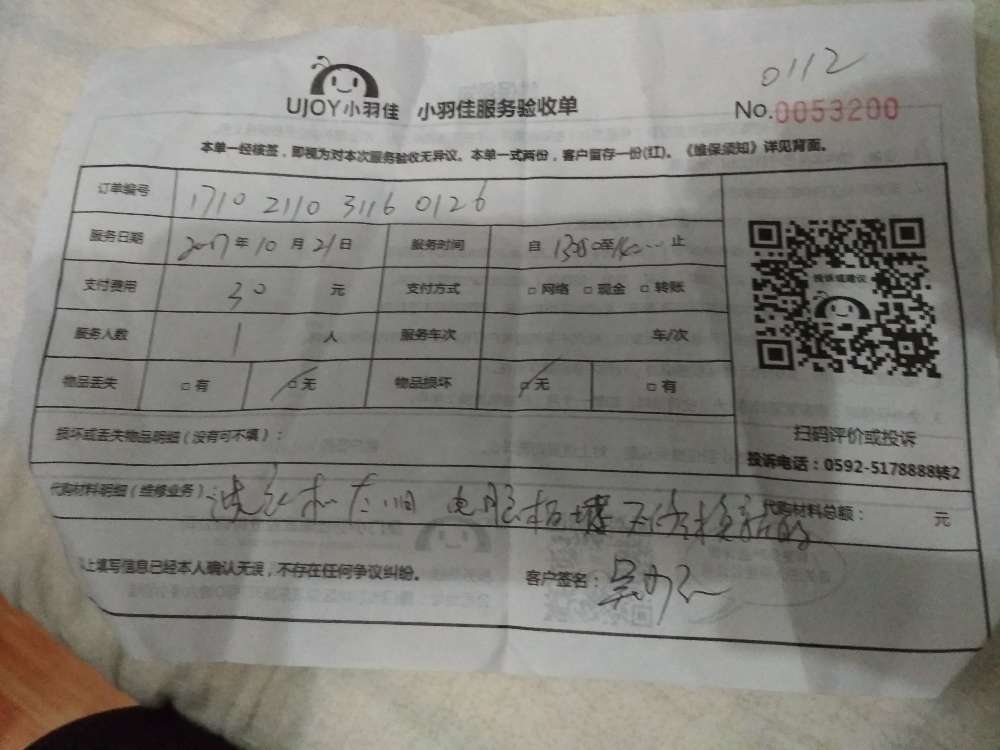 0112
UJOY小羽佳 小羽佳服务验收单 No.0053200
本单一经核签，即视为对本次服务验收无异议。本单一式两份，客户留存一份(红)。《维保须知》详见背面。
订单编号 1710 2110 3116 0126
服务日期 2017年10月21日 服务时间 自 至 止
支付费用 30 元 支付方式 □网络 □现金 □转账
服务人数 1 人 服务车次 车/次
物品丢失 □有 □无 物品损坏 □无 □有
损坏或丢失物品明细（没有可不填）：
投诉或建议
扫码评价或投诉
投诉电话：0592-5178888转2
代购材料明细（维修业务）： 洗衣机 电脑板 代购材料总额： 元
上填写信息已经本人确认无误，不存在任何争议纠纷。 客户签名：